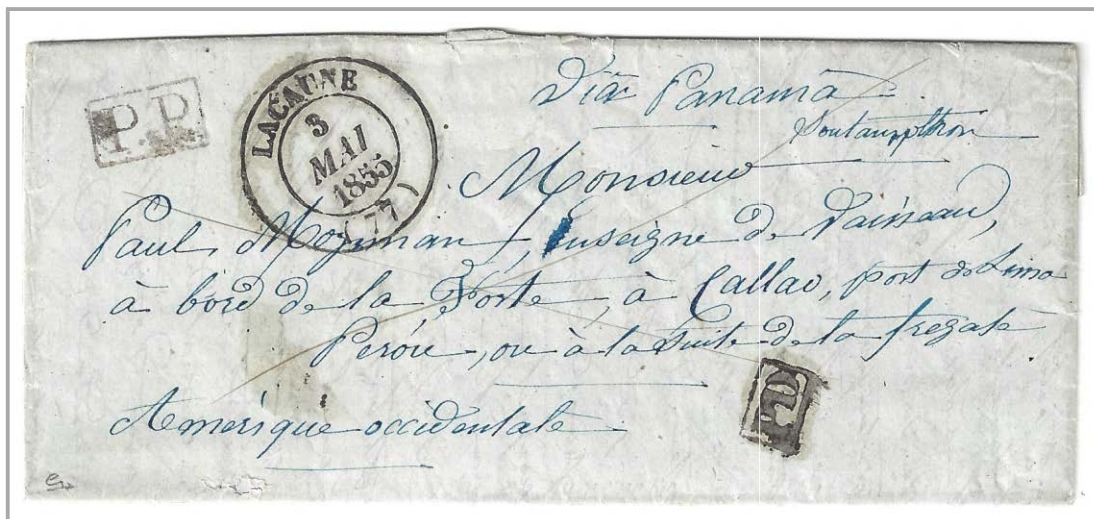 P.P.
LACAUNE
3
MAI
1855
(77)
Viâ Panama
Soutampthon
Monsieur
Paul, enseigne de Vaisseau,
à bord de la Forte, à Callao, port de Lima
Pérou, ou à la suite de la fregate
Amerique occidentale
PD